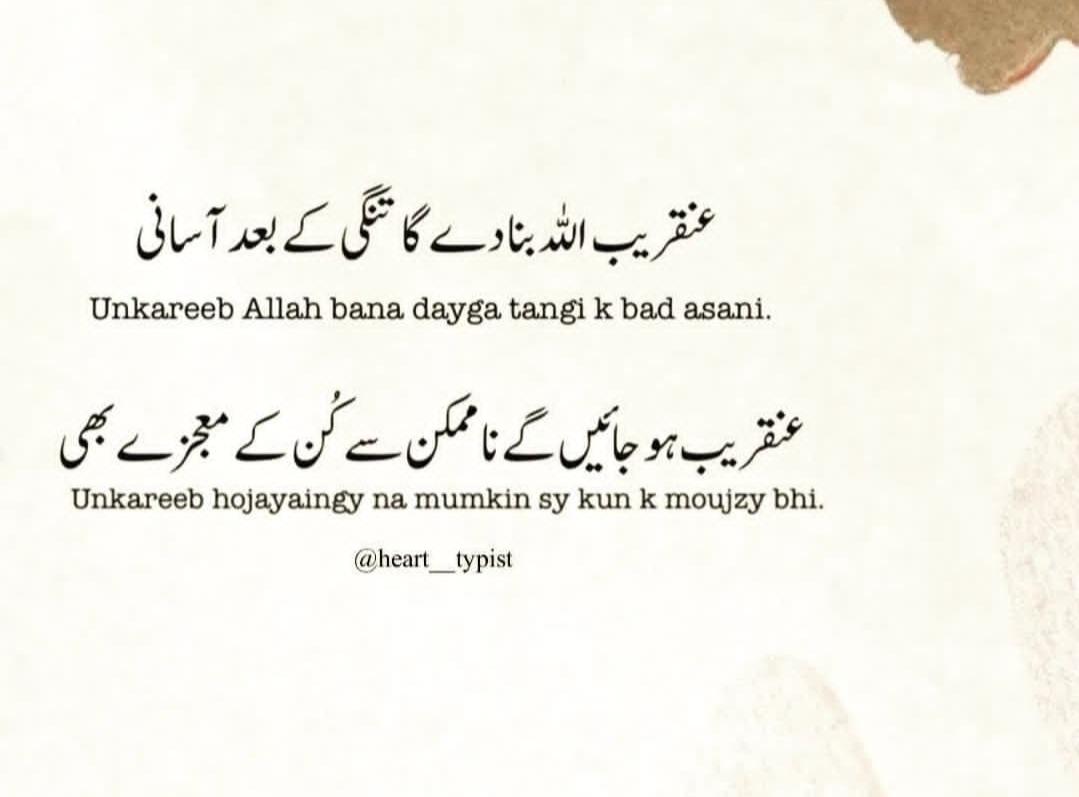 عنقریب اللہ بنا دے گا تنگی کے بعد آسانی
Unkareeb Allah bana dayga tangi k bad asani.
عنقریب ہو جائیں گے نا ممکن سے کُن کے معجزے بھی
Unkareeb hojayaingy na mumkin sy kun k moujzy bhi.
@heart__typist